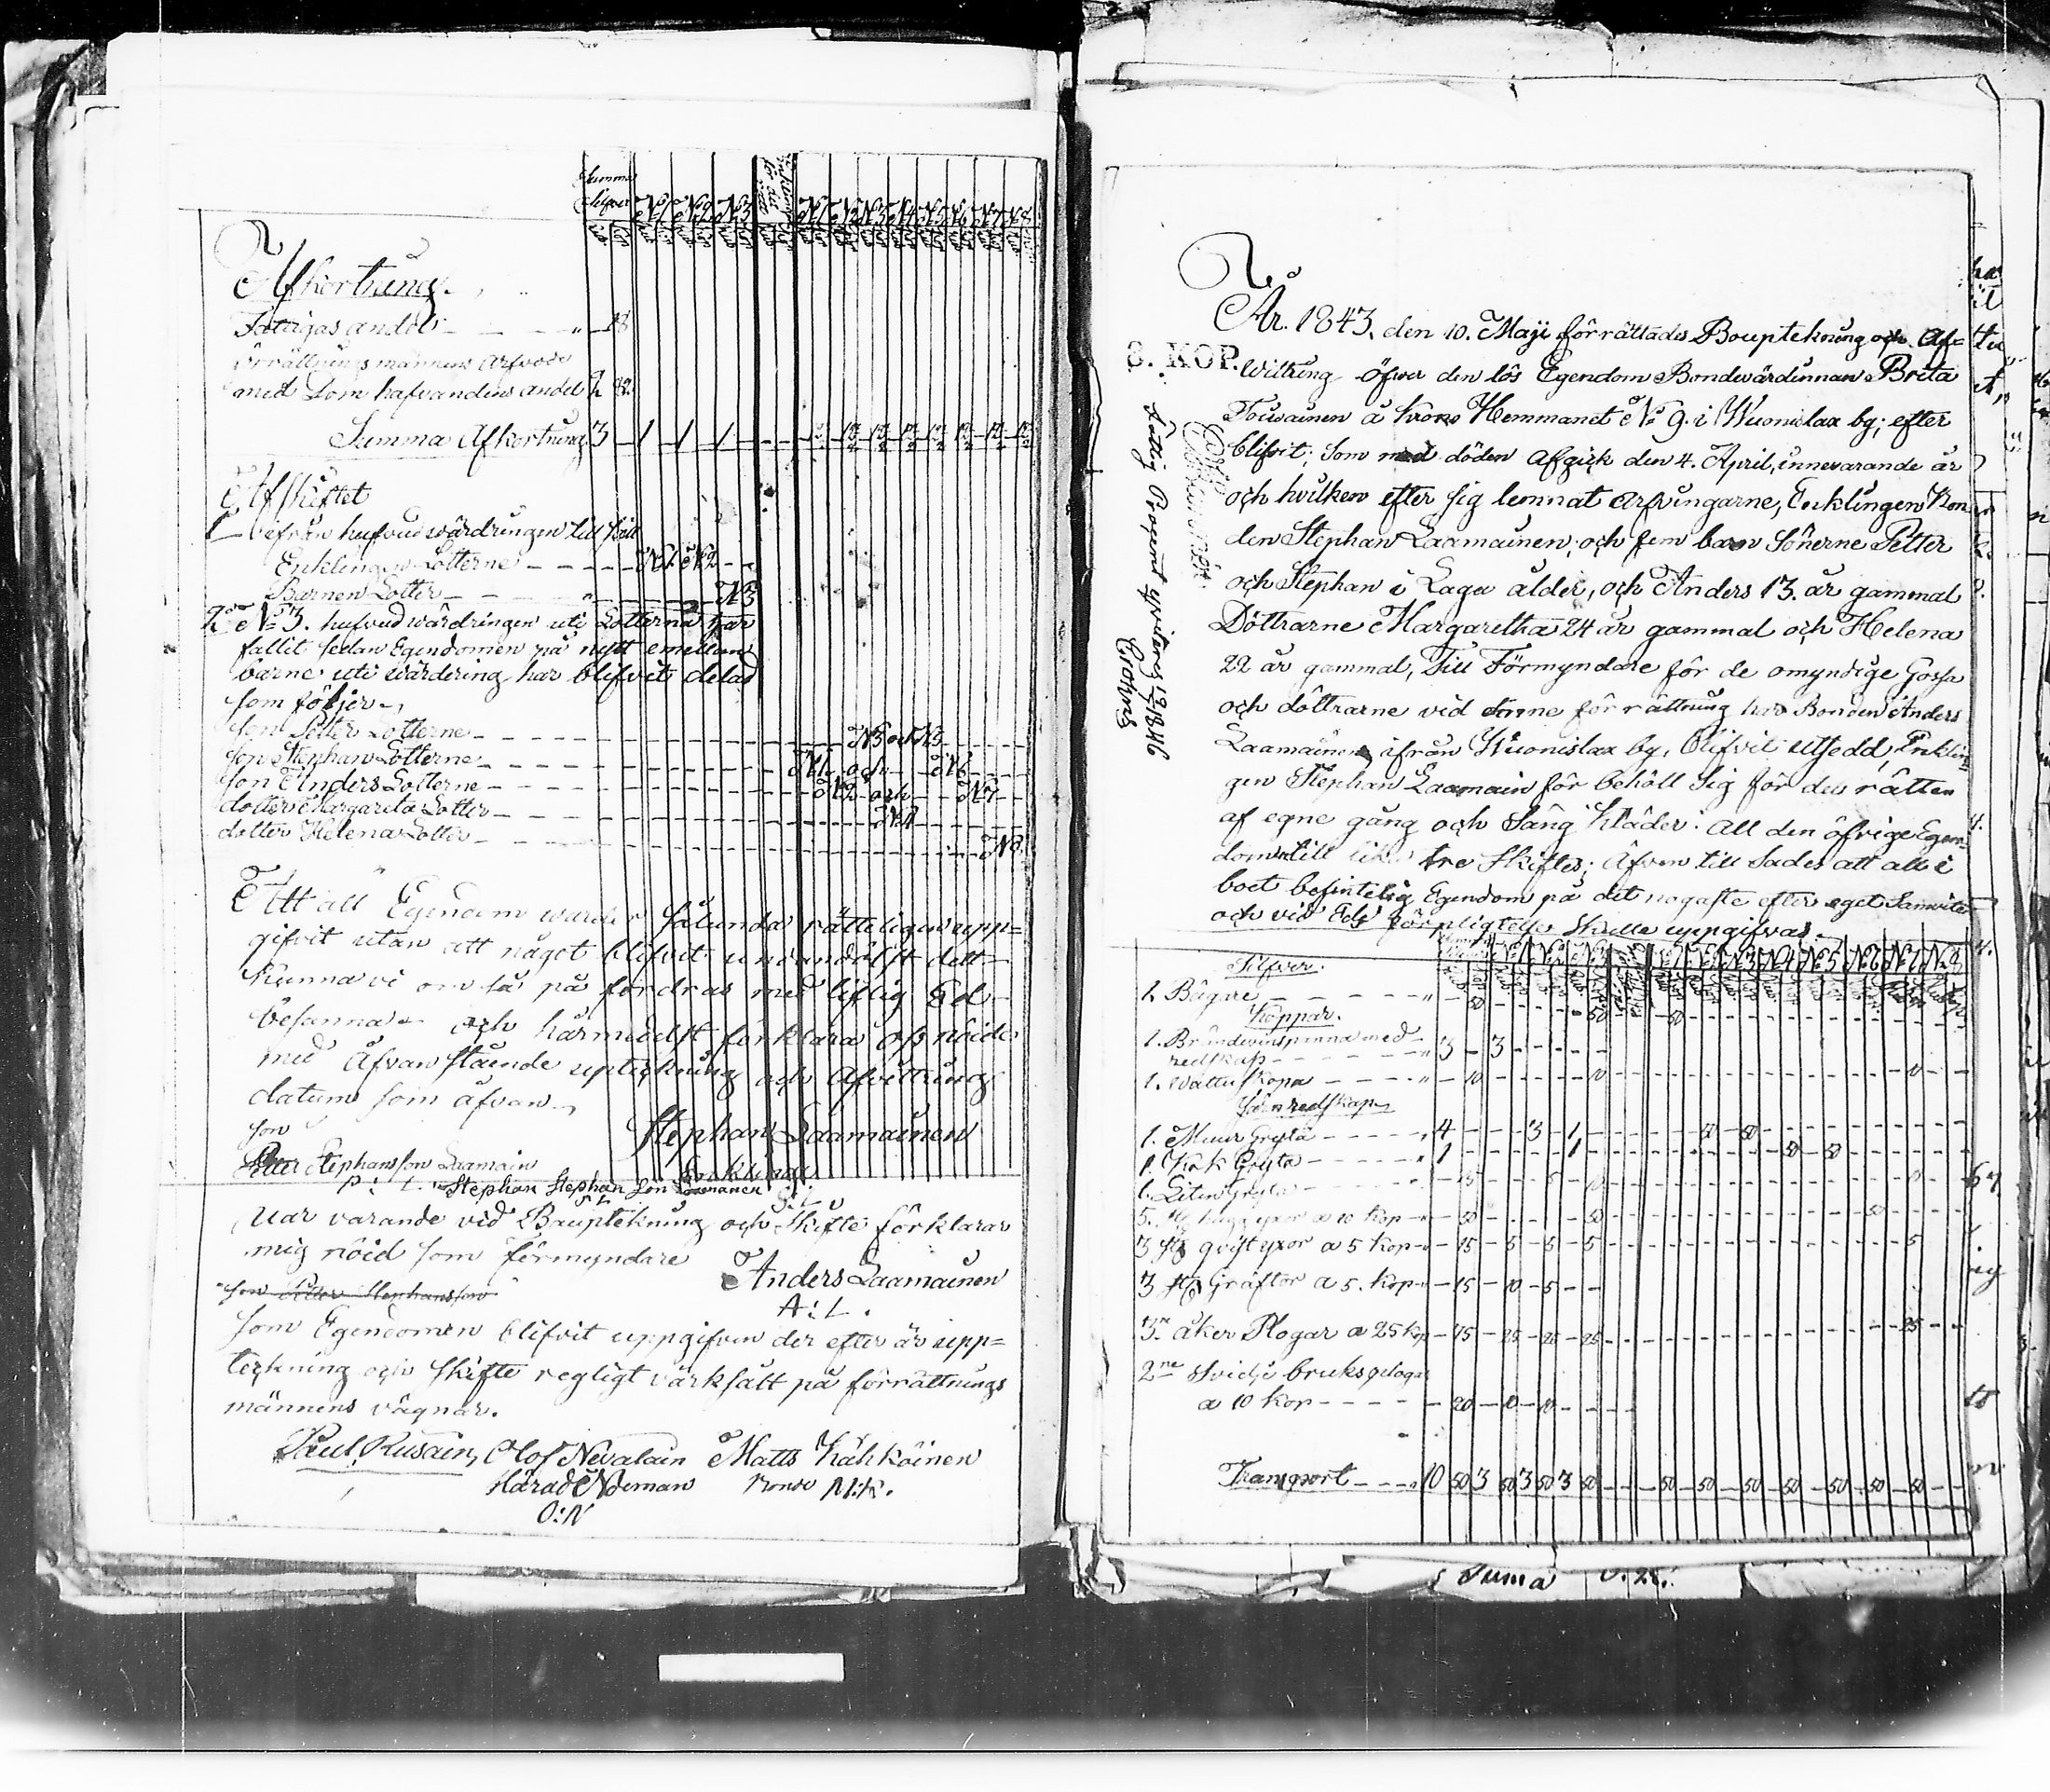 Summa
Silfver
N1 N2 N3 N1 N2 N3 N4 N5 N6 N7 N8
Afkortning.
Fattigas andel - - - " - 18
örrättnings männens Arfvode
med Som hafvandens andel 2 82
Summa Afkortning 3 - 1 - 1 - 1
Afskiftet
1 ifrån hufvud wärdringen till föll
Enklingen Lotterne - - - - N1 N2 - -
Barnen Lotter - - - - - N3
2o N 3. hufvudwärdringen uti Lotterna har
fallit sedan Egendomen på nytt emellan
barne uti wärdering har blifvit delad
som följer -,
Son Petter Lotterne - - - N3 och N5
Son Stephan Lotterne - - - N1 - och - N6
Son Anders Lotterne - - - N2 och - N7
dotter Margareta Lotter - - - N4
dotter Helena Lotter - - - N8.
Att all Egendom warder sålunda rätteligen upp=
gifvit utan att något blifvit undandölft dett
Kunna vi om så på fordras med liflig Ed
besanna - och härmedelst förklara oss nöide
med Åfvanstående upteckning och Afvittring
datum som åfvan
Son Stephan Laamainen
Petter Stephansson Laamain Enklingen
P: L. Stephan Stephan Son Laamanen S: L
S L
Uar varande vid Bauptekning och Skifte förklarar
mig nöid som förmyndare Anders Laamainen
son Petter Stephansson A: L.
Som Egendomen blifvit uppgifven der efter är upp=
teckning och Skifte regligt värksält på förrättnings
männens vägnar.
Paul Rusain, Olof Nevalain Matts Kähköinen
Härads Nämman Bonde M:K.
O:N
År. 1843. den 10. Maji förrättades Bouptekning och Af=
8. KOP. wittring öfver den lös Egendom Bondwärdinnan Brita
Toiwainen å Krono Hemmanet No 9. i Wuonislax by; efter
blifvit; Som med döden Afgick den 4. April, innevarande år
och hvilken efter sig lemnat arfvingarne, Enklingen Bon
den Stephan Laamainen; och fem barn Sönerne Petter
och Stephan i Laga ålder, och Anders 13. år gammal
Döttrarne Margaretha 24 år gammal och Helena
22 år gammal, Till Förmyndare för de omyndige Gossa
och döttrarne vid denne förrättning har Bonden Anders
Laamainen ifrån Wuonislax by, Blifvit utsedd, Enklin=
gen Stephan Laamain för behöll Sig för deu rätten
af egne gång och Säng Kläder: all den öfrige Egen=
dom till lika tre Skiftes; Äfven till Sades att alt i
boet befintelig Egendom på det nogaste efter eget Samvite
och vid Eds förpligtelse skulle uppgifvas.
Fattig Procent qviteras 12/2 1846
Crohns
Silfver. N1 N2 N3 N1 N2 N3 N4 N5 N6 N7 N8
1. Bägare - - - - " - 50 - - - 50 - 50
Koppar.
1. Brändevinspanna med
redskap - - - " 3 - 3 - - - -
1. Wattu skopa - - - " - 10 - - - 10 - - - 10
Järn redskap
1. Muur Gryta - - - " 4 - - - 3 - 1 - - - 50 - 50
1. Kok Gryta - - - " 1 - - - 1 - - - 50 - 50
1. Liten Gryta - - - - 15 - - 5 - 10 - - - 10
5. st hugg yxor a 10 Kop - - 50 - - - 50 - - - 50
3 st qvist yxor a 5 Kop - - 15 - 5 - 5 - 5 - - - 5
3 st Gräftor a 5. Kop - - 15 - 10 - 5 - -
3ne åker Plogar a 25 Kop - 75 - 25 - 25 - 25 - - - 25 - -
2ne Svidje bruksplogar
a 10 Kop - - - - - 20 - 10 - 10 - - -
Transport - - - 10 50 3 50 3 50 3 50 - - - 50 - 50 - 50 - 50 - 50 - 50 - 50 - -
Suma